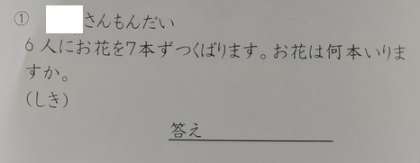 ① さんもんだい
6人にお花を7本ずつくばります。お花は何本いりま
すか。
(しき)
答え